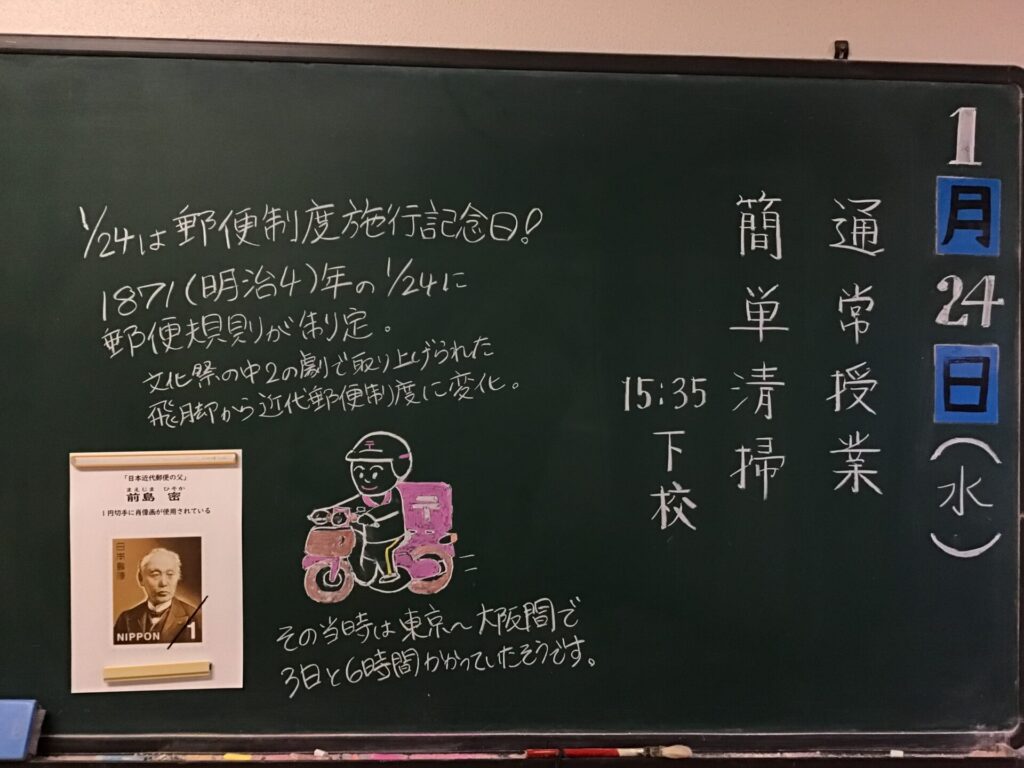 1月24日(水)
通常授業
簡単清掃
15:35
下校
1/24は郵便制度施行記念日!
1871(明治4)年の1/24に
郵便規則が制定。
文化祭の中2の劇で取り上げられた
飛脚から近代郵便制度に変化。
「日本近代郵便の父」
まえじま ひそか
前島 密
1円切手に肖像画が使用されている
日本郵便
NIPPON 1
〒
〒
その当時は東京〜大阪間で
3日と6時間かかっていたそうです。